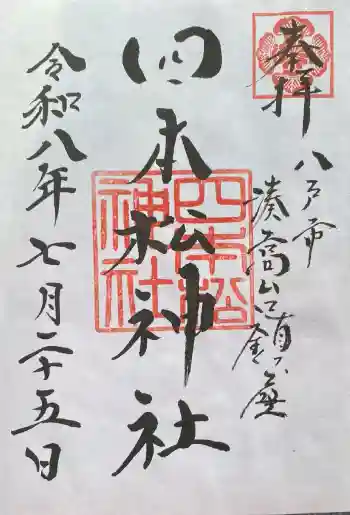 奉拝
八戸市
湊高山口鎮座
四本松神社
四本松
神社
令和八年七月二十五日